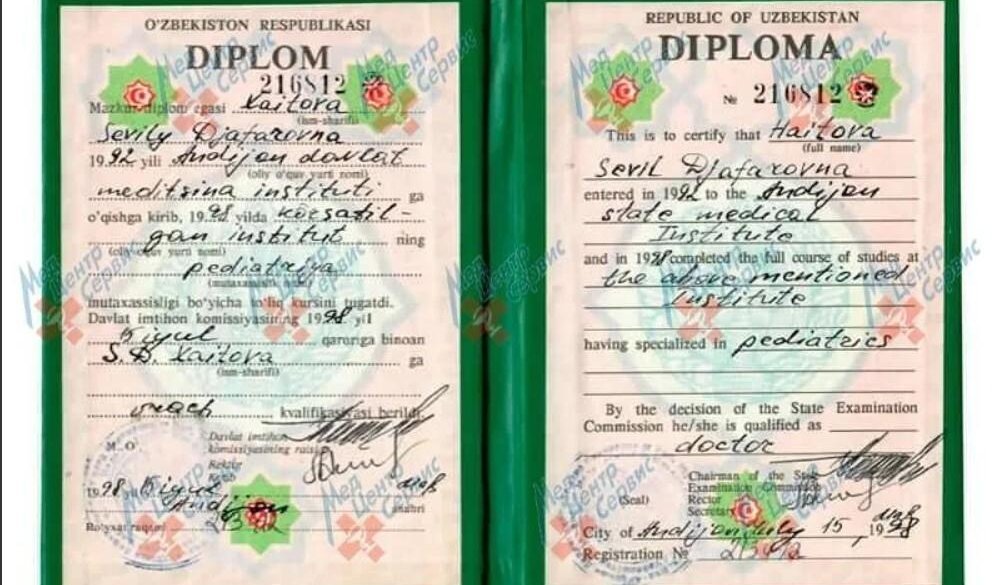 O'ZBEKISTON RESPUBLIKASI
DIPLOM
216812
Mazkur diplom egasi Xaitova
(ism-sharifi)
Sevily Djafarovna
1992 yili Andijon davlat
(oliy o'quv yurti nomi)
meditsina instituti ga
o'qishga kirib, 1998 yilda ko'rsatil-
gan institut ning
(oliy o'quv yurti nomi)
pediatriya
(mutaxassislik nomi)
mutaxassisligi bo'yicha to'liq kursini tugatdi.
Davlat imtihon komissiyasining 1998 yil
15 iyul qaroriga binoan
S.D. Xaitova ga
(ism-sharifi)
vrach kvalifikatsiyasi berildi.
M. O'
Davlat imtihon
komissiyasining raisi
Rektor
1998 yil 15 iyul
Andijon shahri
Ro'yxat raqami
REPUBLIC OF UZBEKISTAN
DIPLOMA
№ 216812
This is to certify that Haitova
(full name)
Sevil Djafarovna
entered in 1992 to the Andijan
state medical
Institute
and in 1998 completed the full course of studies at
the above mentioned
Institute
having specialized in pediatrics
By the decision of the State Examination
Commission he/she is qualified as
doctor
(Seal)
Chairman of the State
Examination Commission
Rector
Secretary
City of Andijan July 15, 1998
Registration №
Мед Центр Сервис